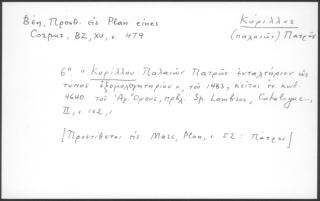 Βέη, Προσθ. εἰς Plan eines
Corpus, BZ, XV, σ. 479
Κύριλλος
(παλαιῶν) Πατρῶν
6ον « Κυρίλλου Παλαιῶν Πατρῶν ἐνταλτήριον ὡς
τύπος ἐξομολογητηρίου », τοῦ 1483, κεῖται ἐν κωδ.
4640 τοῦ Ἁγ. Ὄρους, πρβλ. Sp. Lambros, Catalogue,
II, σ. 162,
[Προστίθεται εἰς Marc, Plan, σ. 52 : Πάτραι]